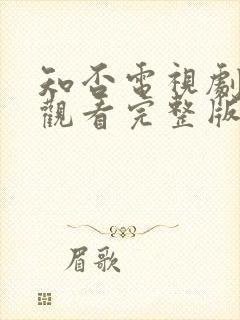 知否電視劇
觀看完整版
眉歌